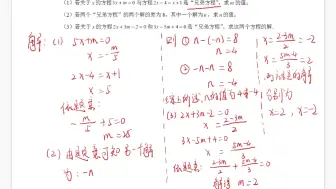 (1) 若关于x的方程5x+m=0与方程2x-4=x+1是“兄弟方程”，求m的值；
(2) 若两个“兄弟方程”的两个解的差为8，其中一个解为n，求n的值；
(3) 若关于x的方程2x+3m-2=0和3x-5m+4=0是“兄弟方程”，求这两个方程的解.
(1) 5x+m=0
x=-m/5
2x-4=x+1
x=5
依题意:
-m/5+5=0
m=25
(2) 由题意可知另一个解
为:-n
则 ① n-(-n)=8
n=4
② -n-n=8
n=-4
综上所述,n的值为4或-4
(3) 2x+3m-2=0
x=(2-3m)/2
3x-5m+4=0
x=(5m-4)/3
依题意: (2-3m)/2+(5m-4)/3=0
m=2
x=(2-3m)/2=-2
x=(5m-4)/3=2
分别为
x=2,x=-2